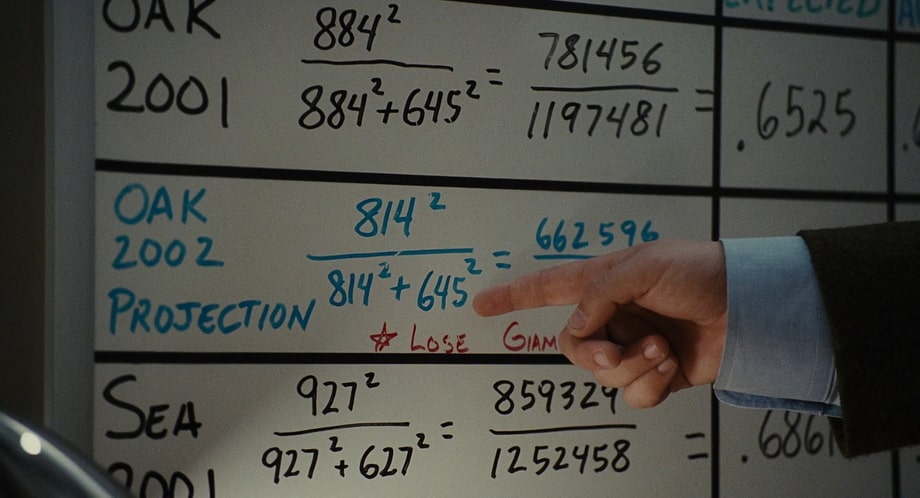 OAK
2001
884²
884²+645²
=
781456
1197481
=
.6525
OAK
2002
PROJECTION
814²
814²+645²
=
662596
☆ LOSE
SEA
2001
927²
927²+627²
=
859329
1252458
=